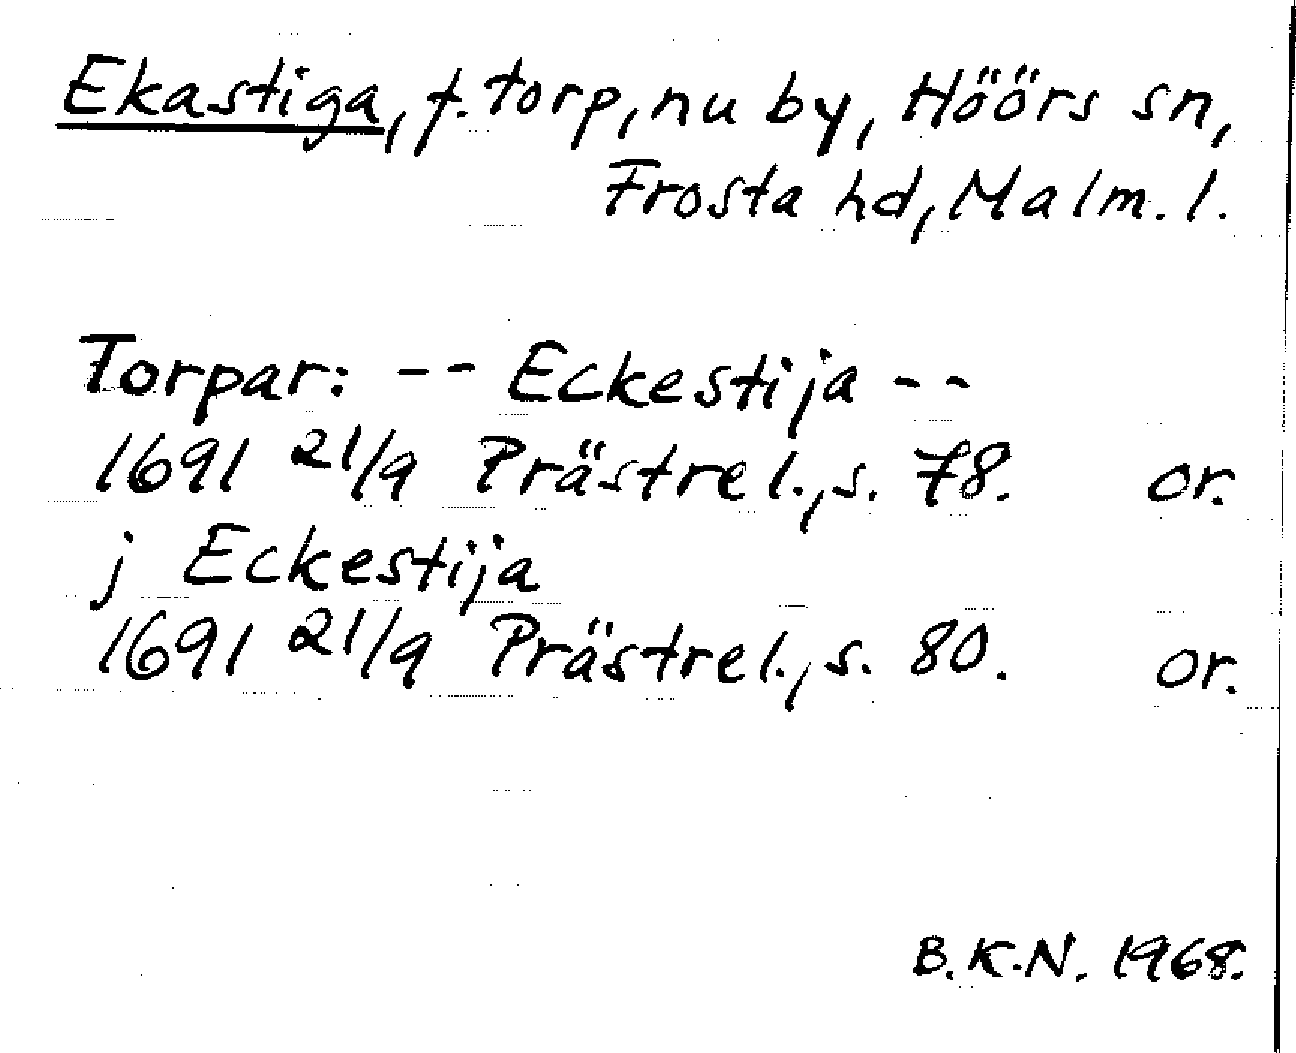 Ekastiga, f. torp, nu by, Höörs sn,
Frosta hd, Malm. l.
Torpar: -- Eckestija --
1691 21/9 Prästrel., s. 78. or.
j Eckestija
1691 21/9 Prästrel., s. 80. or.
B.K.N. 1968.